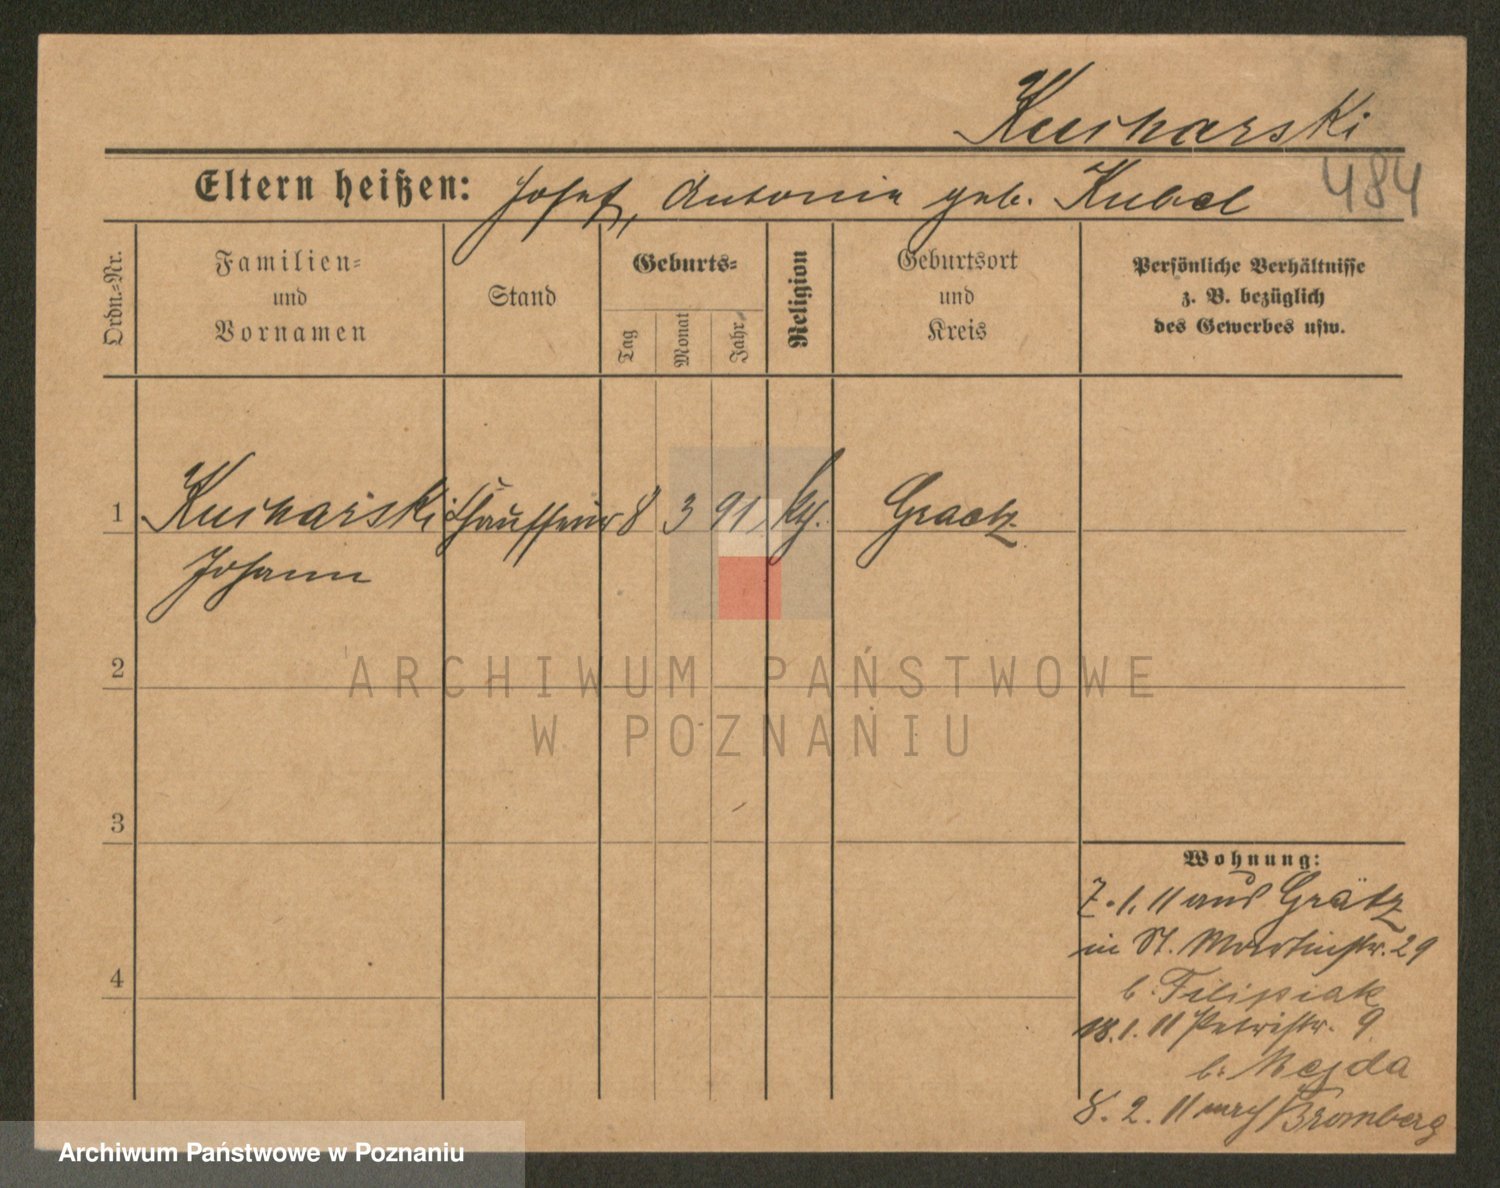 Kucharski
484
Eltern heißen: Josef, Antonie geb. Kubel
Ordn.-Nr.
Familien-
und
Vornamen
Stand
Geburts-
Tag
Monat
Jahr
Religion
Geburtsort
und
Kreis
Persönliche Verhältnisse
z. B. bezüglich
des Gewerbes usw.
1 Kucharski Chauffeur 8 3 91 kth. Graetz
Johann
2
3
4
Wohnung:
7.1.11 aus Grätz
in St. Martinstr. 29
b. Filipiak
18.1.11 Petristr. 9
b. Mejda
8.2.11 nach Bromberg
ARCHIWUM PAŃSTWOWE
W POZNANIU
Archiwum Państwowe w Poznaniu